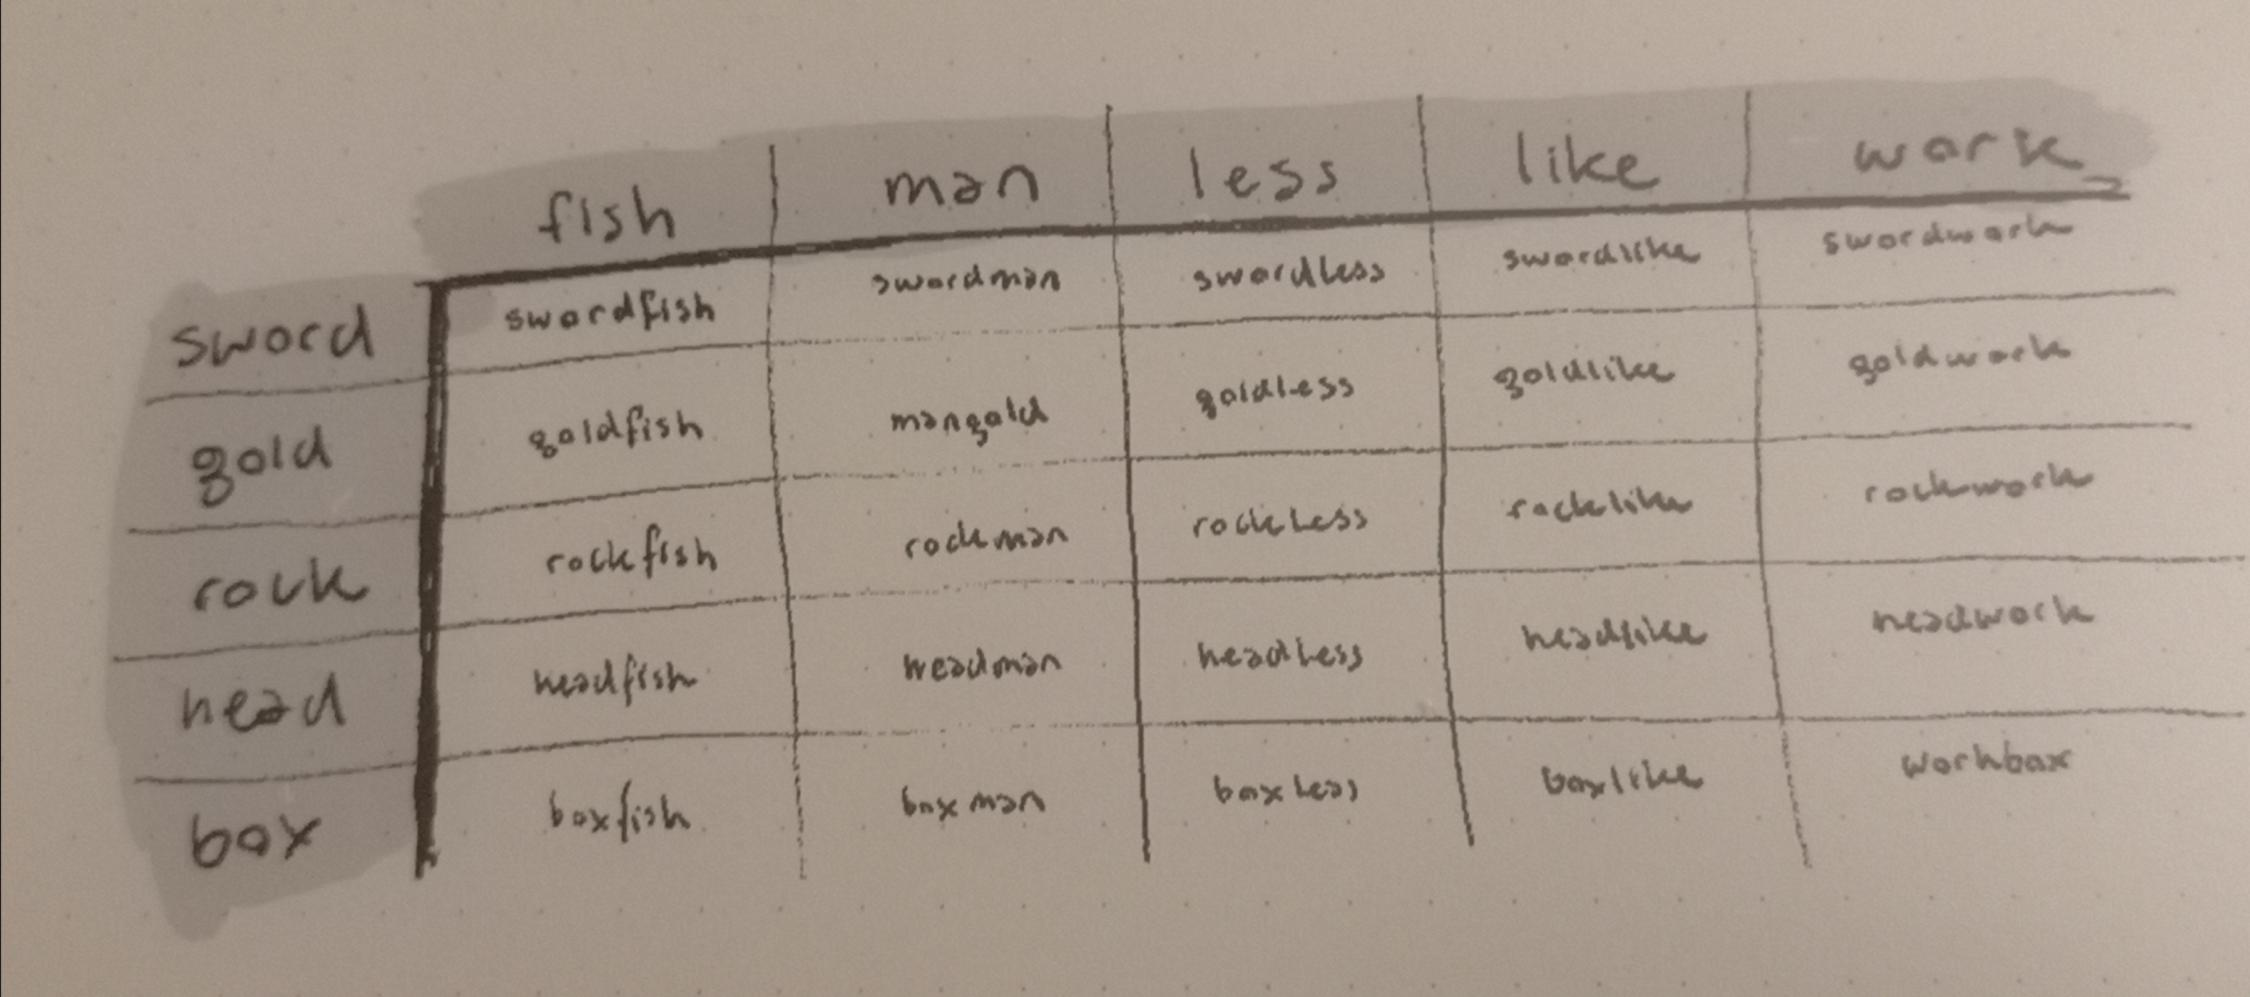 fish man less like work
sword swordfish swordman swordless swordlike swordwork
gold goldfish mangold goldless goldlike goldwork
rock rockfish rockman rockless rocklike rockwork
head headfish headman headless headlike headwork
box boxfish boxman boxless boxlike workbox